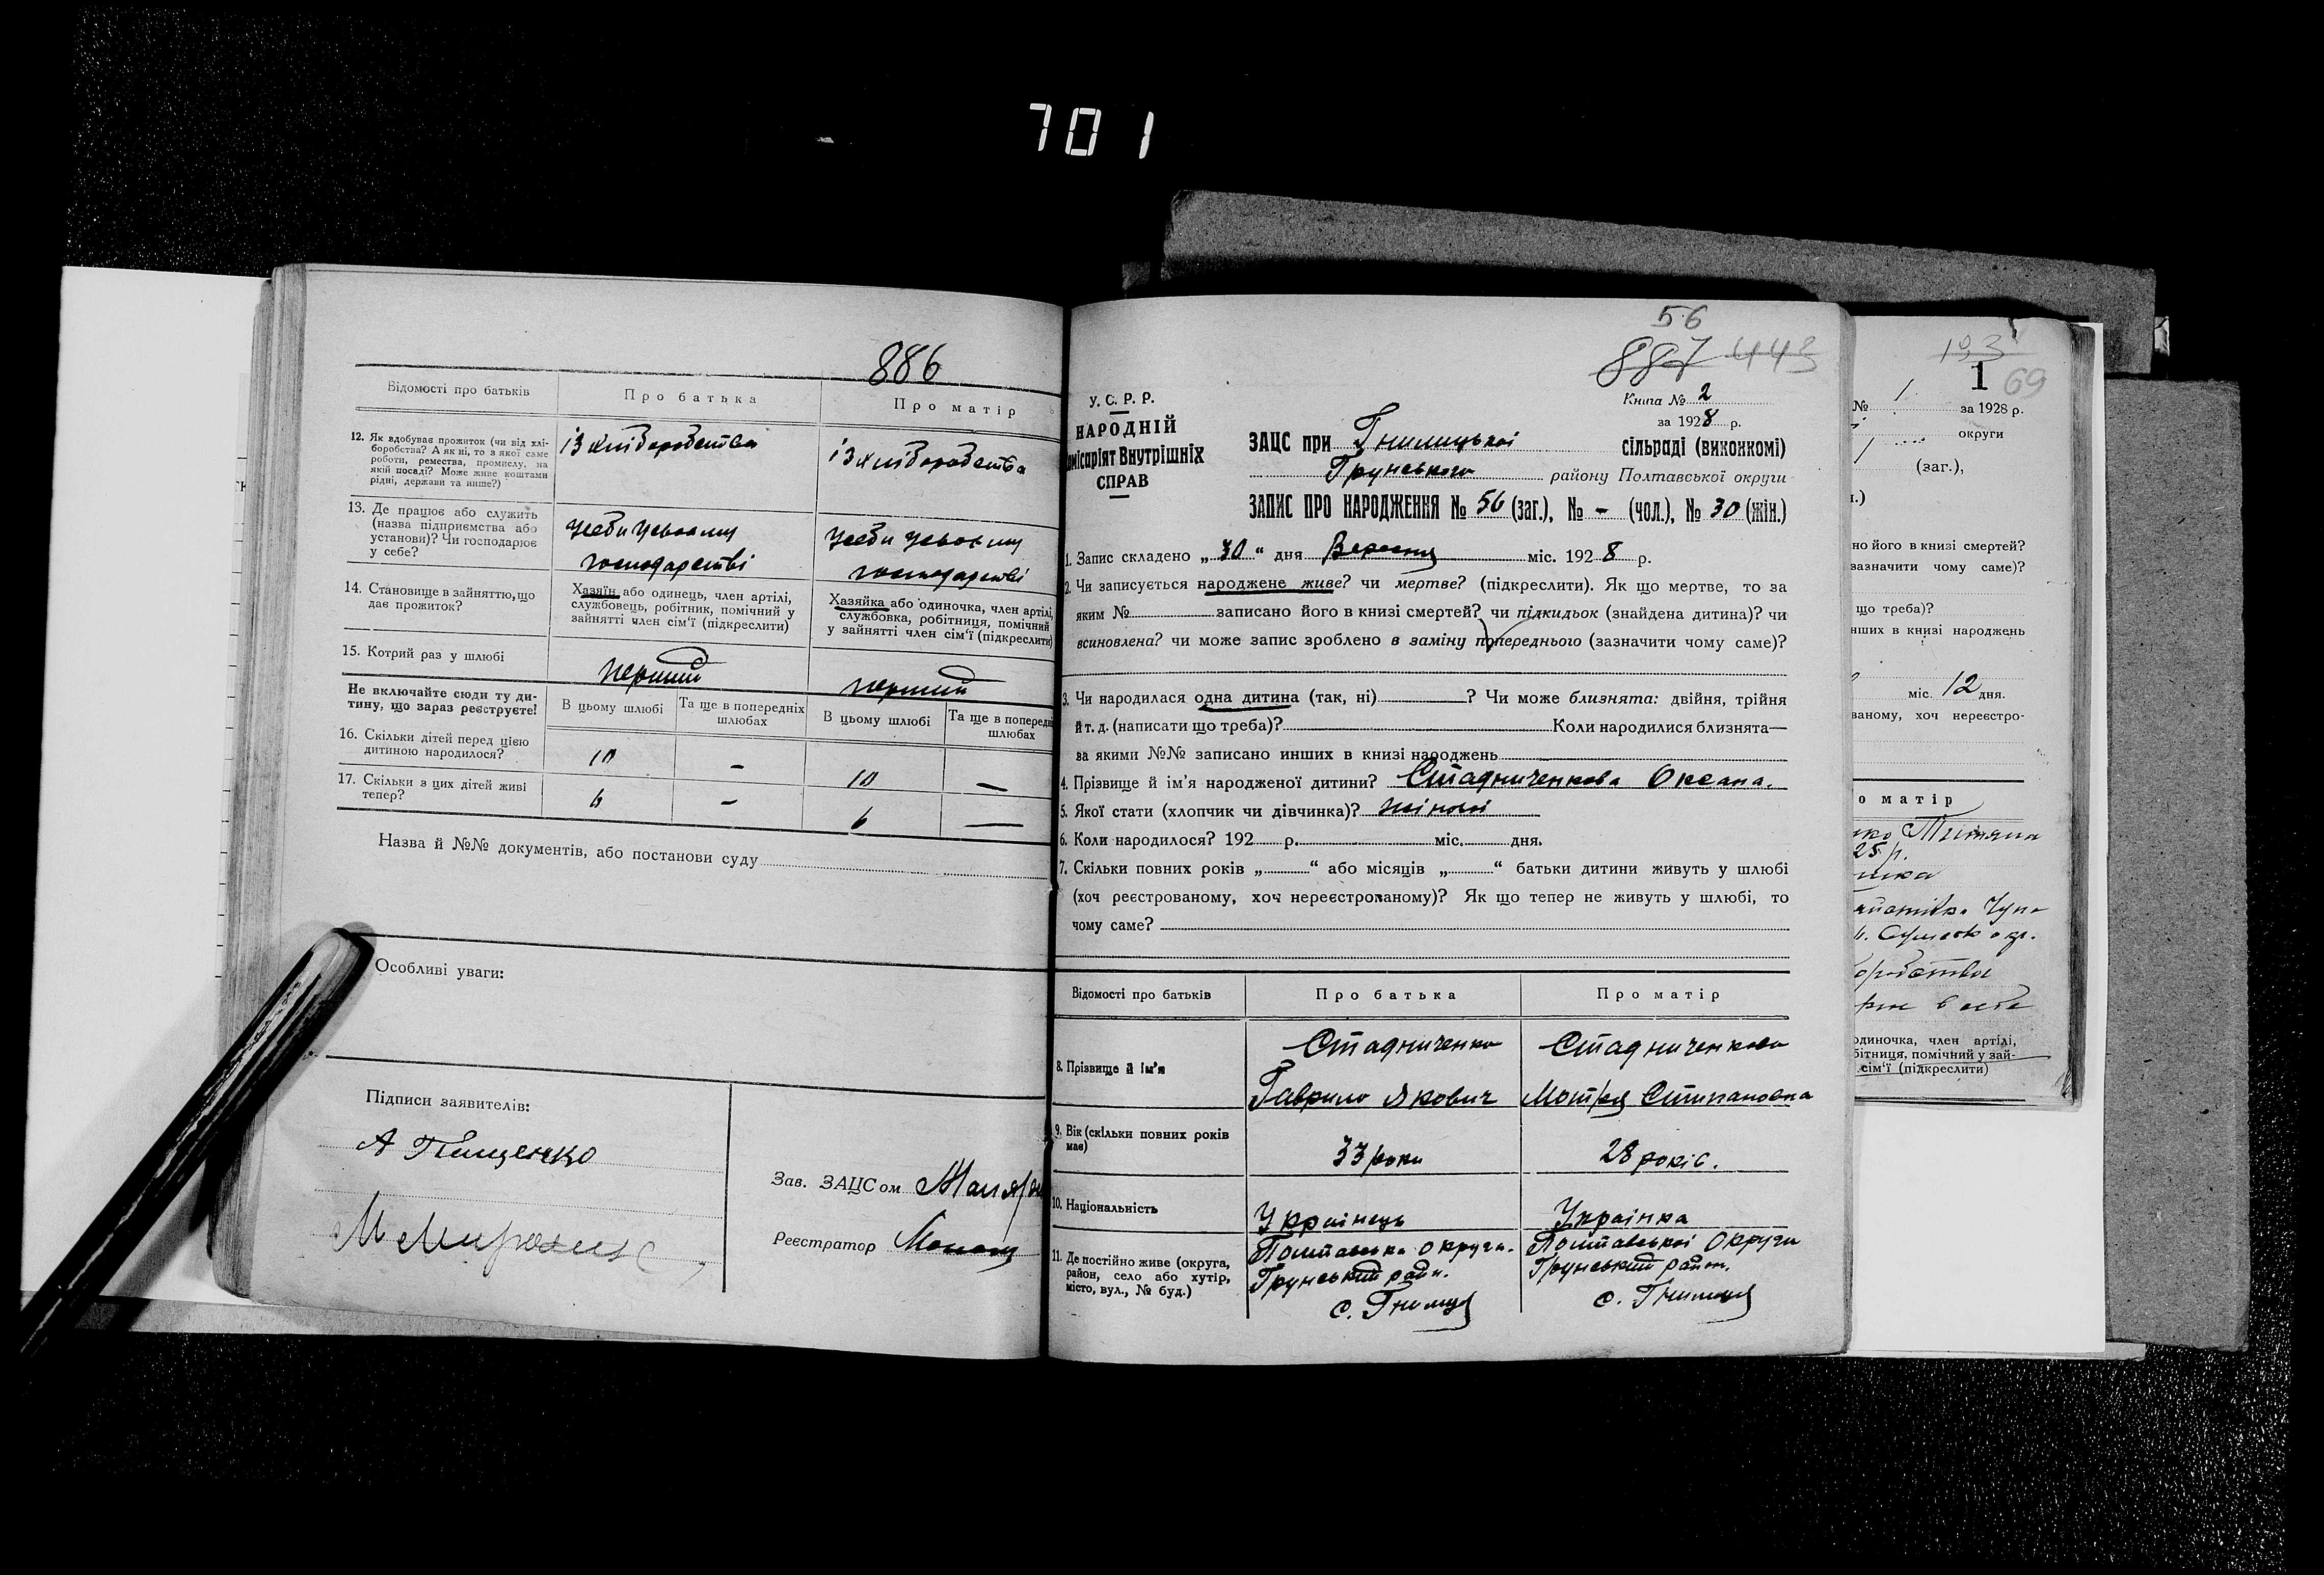 701
886
Відомості про батьків
Про батька
Про матір
12. Як здобуває прожиток (чи від хлі-
боробства? А як ні, то з якої саме
роботи, ремества, промислу, на
якій посаді? Може живе коштами
рідні, держави та инше?)
із хліборобства
із хліборобства
13. Де працює або служить
(назва підприємства або
установи)? Чи господарює
у себе?
господарстві
господарстві
14. Становище в зайняттю, що
дає прожиток?
Хазяїн або одинець, член артілі,
службовець, робітник, помічний у
зайнятті член сім'ї (підкреслити)
Хазяйка або одиночка, член артілі,
службовка, робітниця, помічний
у зайнятті член сім'ї (підкреслити)
15. Котрий раз у шлюбі
перший
перший
Не включайте сюди ту ди-
тину, що зараз реєструєте!
В цьому шлюбі
Та ще в попередніх
шлюбах
В цьому шлюбі
Та ще в попередн
шлюбах
16. Скільки дітей перед цією
дитиною народилося?
10
-
10
—
17. Скільки з цих дітей живі
тепер?
6
-
6
—
Назва й №№ документів, або постанови суду
Особливі уваги:
Підписи заявителів:
А Пащенко
Зав. ЗАЦСом
Реєстратор
56
887 443
У. С. Р. Р.
НАРОДНІЙ
омісаріят Внутрішніх
СПРАВ
Книга № 2
за 1928 р.
ЗАЦС при Гнилицької сільраді (виконкомі)
Грунського району Полтавської округи
ЗАПИС ПРО НАРОДЖЕННЯ № 56 (заг.), № - (чол.), № 30 (жін.)
1. Запис складено „30“ дня Вересня міс. 1928 р.
2. Чи записується народжене живе? чи мертве? (підкреслити). Як що мертве, то за
яким № записано його в книзі смертей? чи підкидьок (знайдена дитина)? чи
всиновлена? чи може запис зроблено в заміну попереднього (зазначити чому саме)?
3. Чи народилася одна дитина (так, ні) ? Чи може близнята: двійня, трійня
й т. д. (написати що треба)? Коли народилися близнята—
за якими №№ записано инших в книзі народжень
4. Прізвище й ім'я народженої дитини? Стадниченкова Оксана.
5. Якої стати (хлопчик чи дівчинка)? жіночої
6. Коли народилося? 192 р. міс. дня.
7. Скільки повних років „ “ або місяців „ “ батьки дитини живуть у шлюбі
(хоч реєстрованому, хоч нереєстрованому)? Як що тепер не живуть у шлюбі, то
чому саме?
Відомості про батьків
Про батька
Про матір
8. Прізвище й ім'я
Стадниченко
Гаврило Якович
Стадниченкова
Мотря Степановна
9. Вік (скільки повних років
має)
33 роки
28 років.
10. Національність
Українець
Українка
11. Де постійно живе (округа,
район, село або хутір,
місто, вул., № буд.)
Полтавська округи.
Грунський район.
с. Гнилиця
Полтавської Округи
Грунський район.
с. Гнилиця
193
1 69
№ 1 за 1928 р.
округи
1 (заг.),
но його в книзі смертей?
зазначити чому саме)?
що треба)?
нших в книзі народжень
міс. 12 дня.
ваному, хоч нереєстро-
о матір
25 р.
одиночка, член артілі,
бітниця, помічний у зай-
сім'ї (підкреслити)